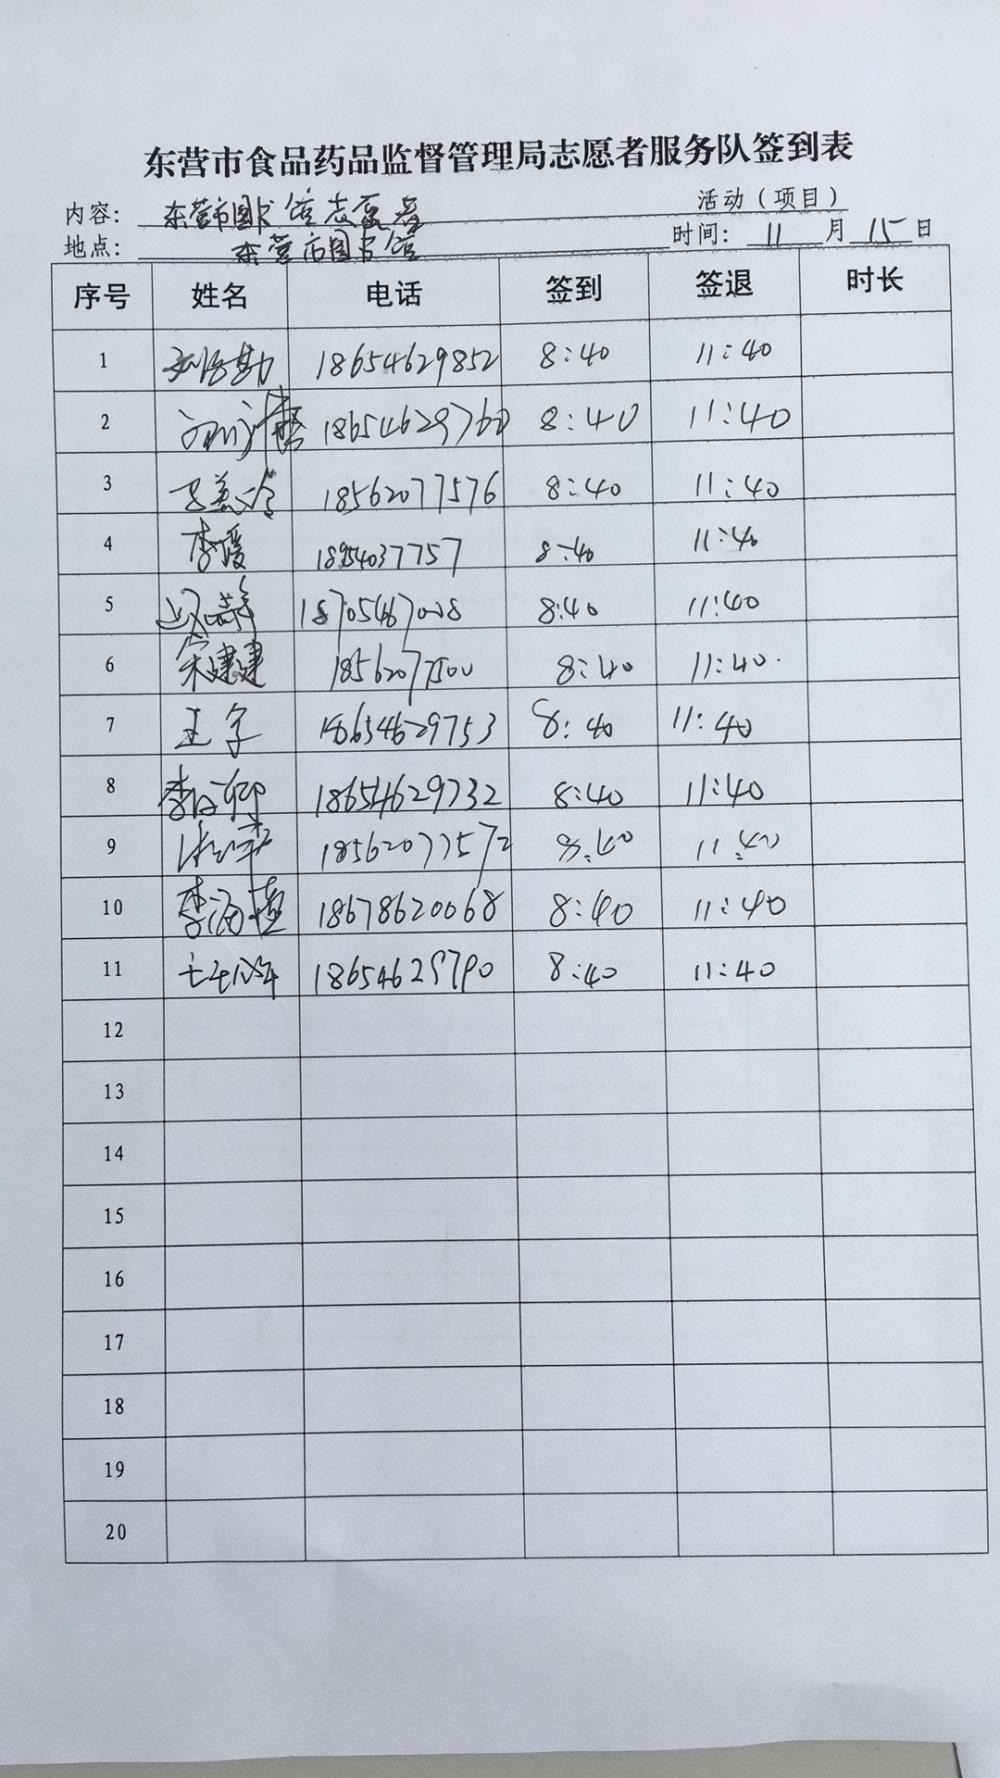 东营市食品药品监督管理局志愿者服务队签到表
内容: 东营市图书馆志愿者 活动(项目)
地点: 东营市图书馆 时间: 11 月 15 日
序号 姓名 电话 签到 签退 时长
1 18654629852 8:40 11:40
2 18654629760 8:40 11:40
3 18562077576 8:40 11:40
4 李媛 18954037757 8:40 11:40
5 8:40 11:40
6 宋建建 18562077500 8:40 11:40
7 王宇 18654629753 8:40 11:40
8 18654629732 8:40 11:40
9 18562077572 8:40 11:40
10 18678620068 8:40 11:40
11 18654629790 8:40 11:40
12
13
14
15
16
17
18
19
20